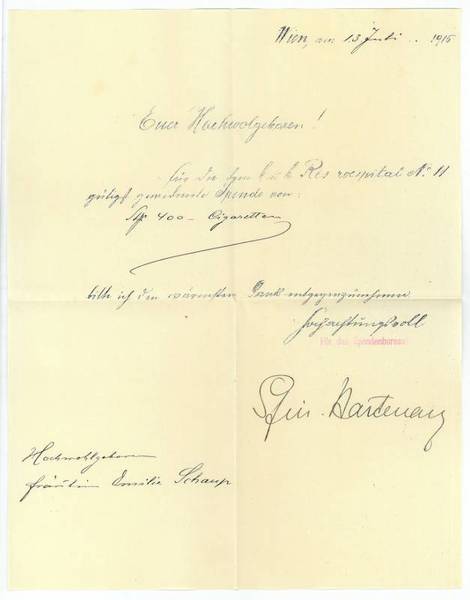 Wien, am 13 Juli 1915
Euer Hochwolgeboren!
für die dem k. u. k. Res. spital No. 11
gütigst gewidmete Spende von:
400 – Cigaretten
bitte ich den wärmsten Dank entgegenzunehmen
Hochachtungsvoll
Für das Spendenbureau
Hochwohlgeboren
Fräulein Emilie Schaup